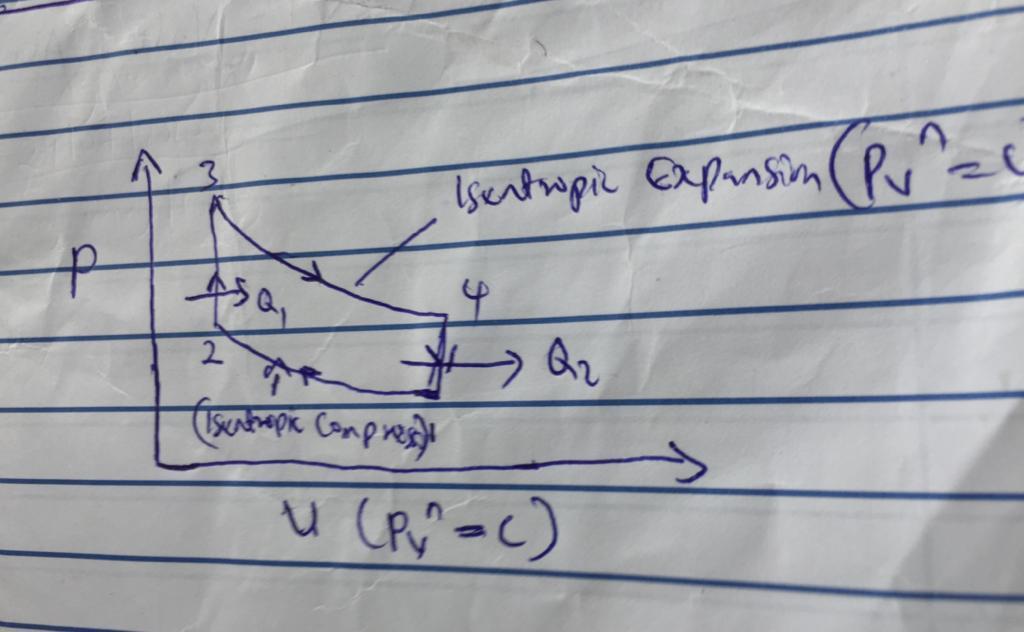 3
Isentropic Expansion (Pv^n = C
P
Q1
4
2
Q2
(Isentropic Compress)1
v (Pv^n = C)